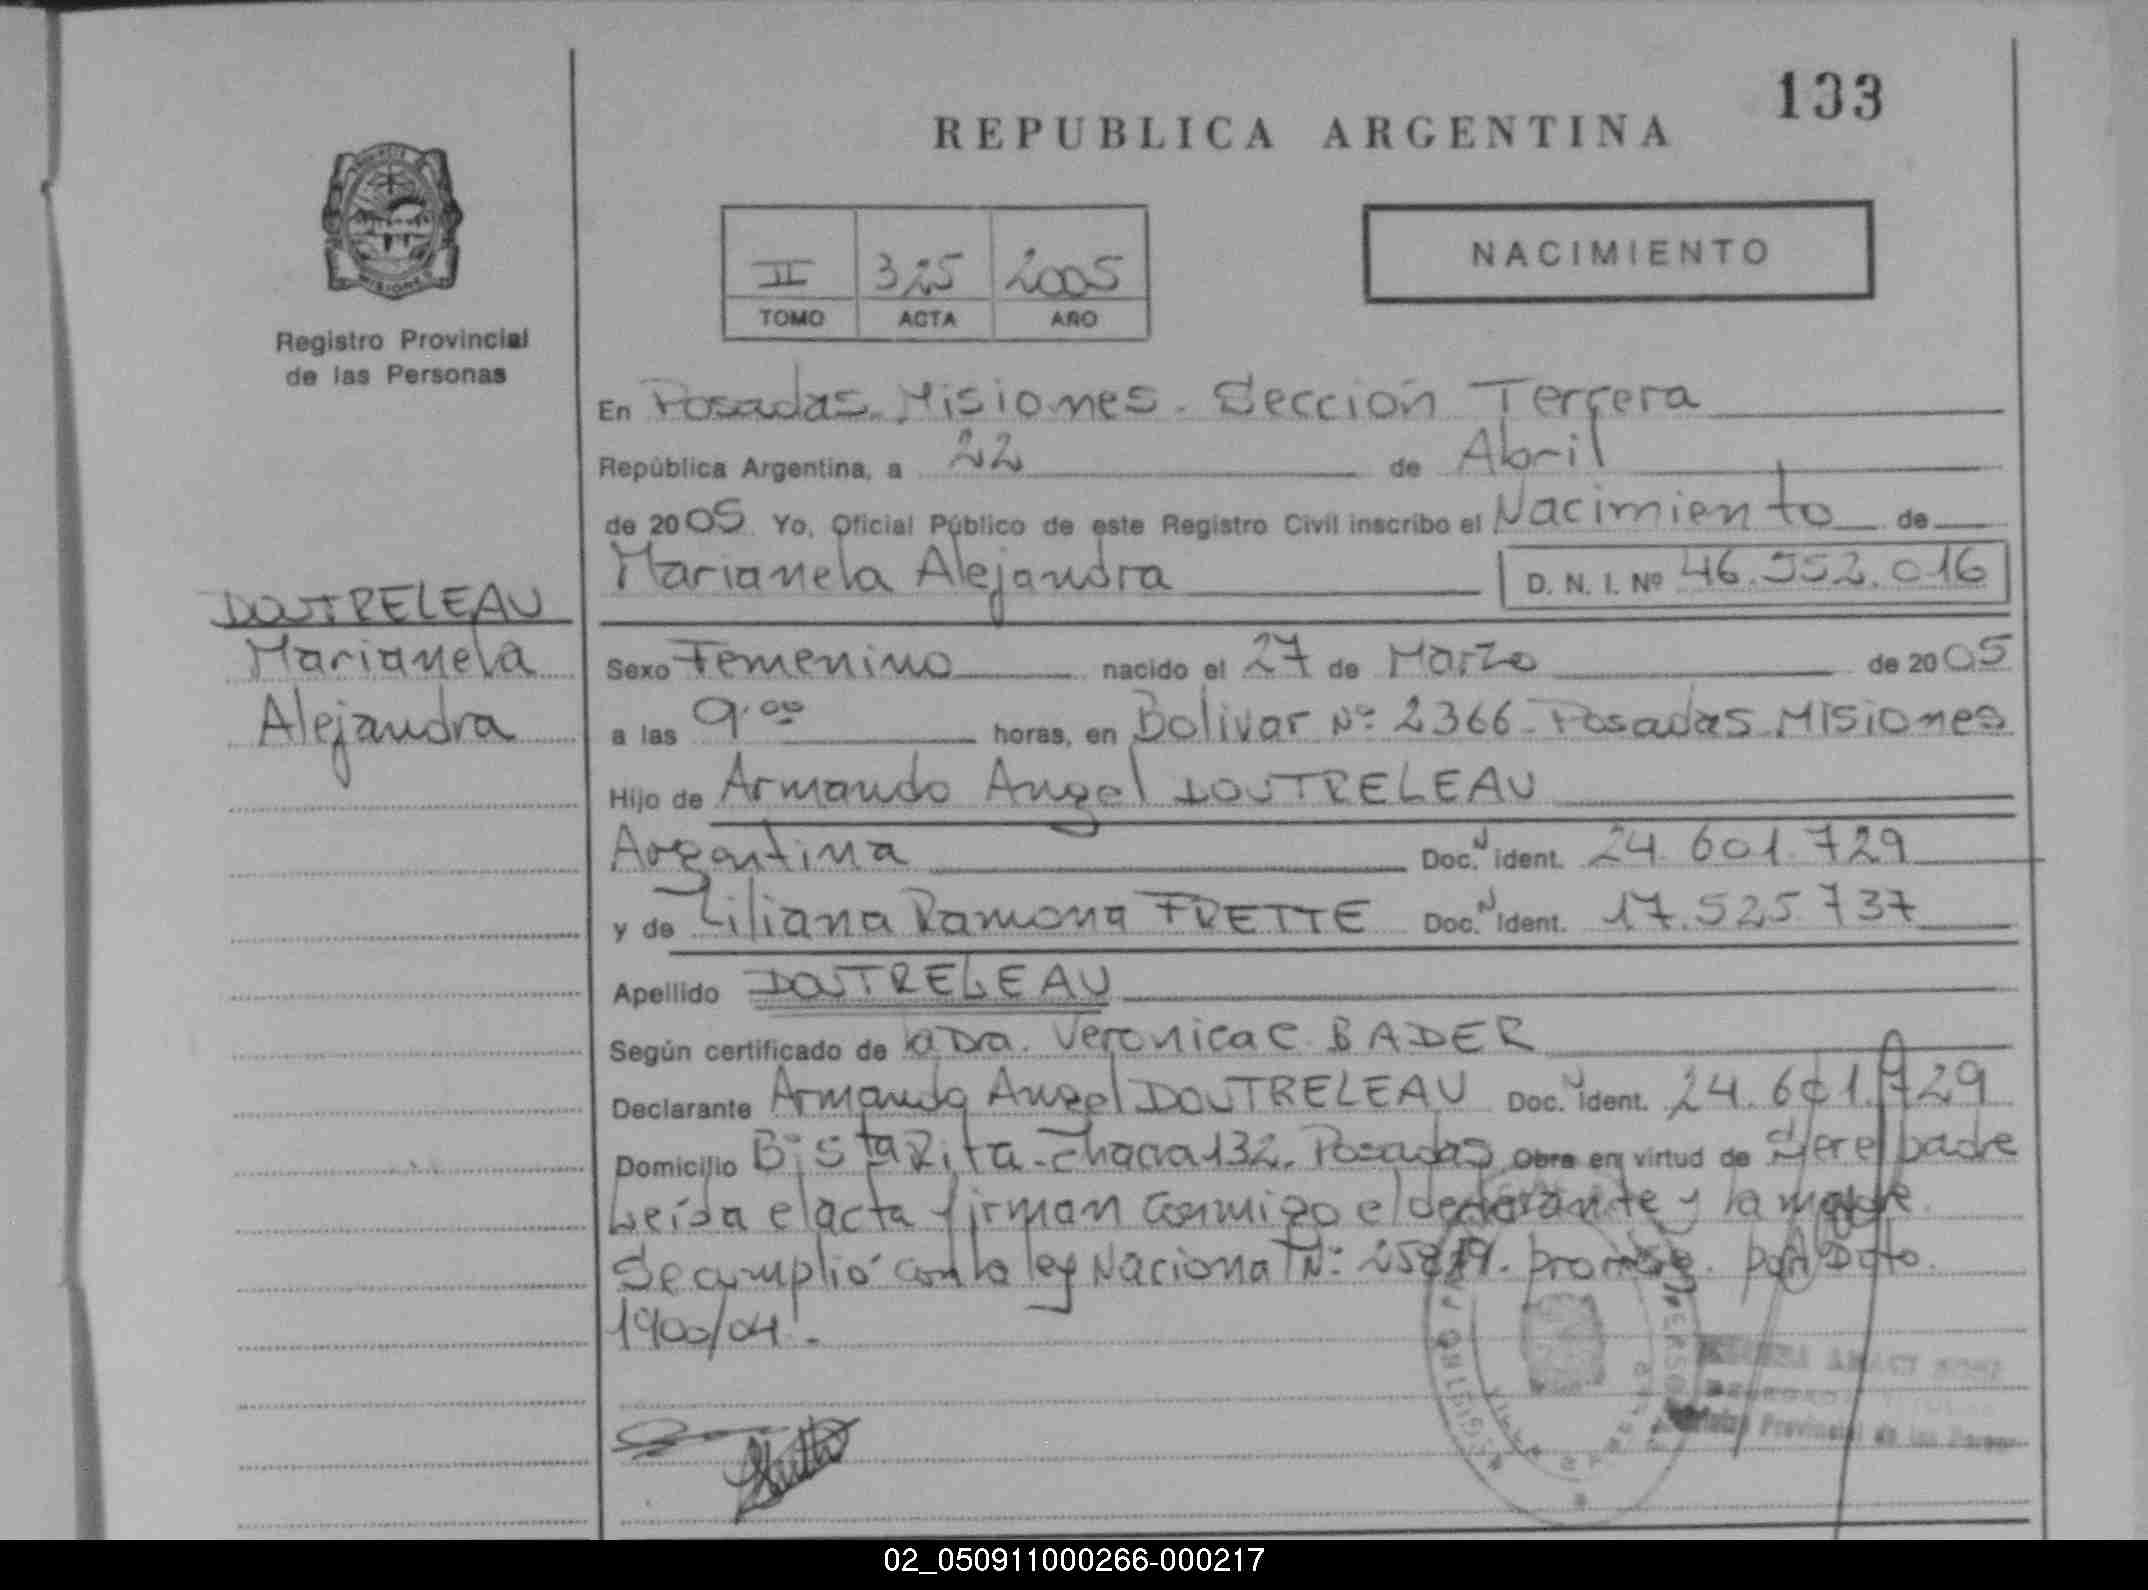 133
REPUBLICA ARGENTINA
NACIMIENTO
II 325 2005
TOMO ACTA AÑO
Registro Provincial
de las Personas
En Posadas. Misiones. Sección Tercera
República Argentina, a 22 de Abril
de 2005. Yo, Oficial Público de este Registro Civil inscribo el Nacimiento de
Marianela Alejandra D. N. I. Nº 46.552.016
DOUTRELEAU
Marianela
Alejandra
Sexo Femenino nacido el 27 de Marzo de 2005
a las 9.00 horas, en Bolivar Nº 2366 - Posadas. Misiones
Hijo de Armando Angel DOUTRELEAU
Argentina Doc. N ident. 24.601.729
y de Liliana Ramona FRETTE Doc. N ident. 17.525.737
Apellido DOUTRELEAU
Según certificado de la Dra. Veronica C. BADER
Declarante Armando Angel DOUTRELEAU Doc. N ident. 24.601.729
Domicilio Bº Sta Rita - Chacra 132. Posadas Obra en virtud de Ser el padre
Leída el acta firman conmigo el declarante y la madre.
Se cumplió con la ley Nacional Nº: promulg. por Dcto.
1900/04.-
Provincial de las Person
02_050911000266-000217